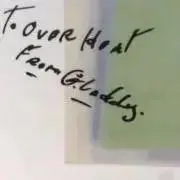 To OVER Hont
From G. Laddy.